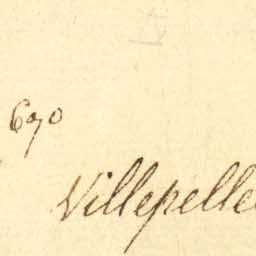 690
Villepelle